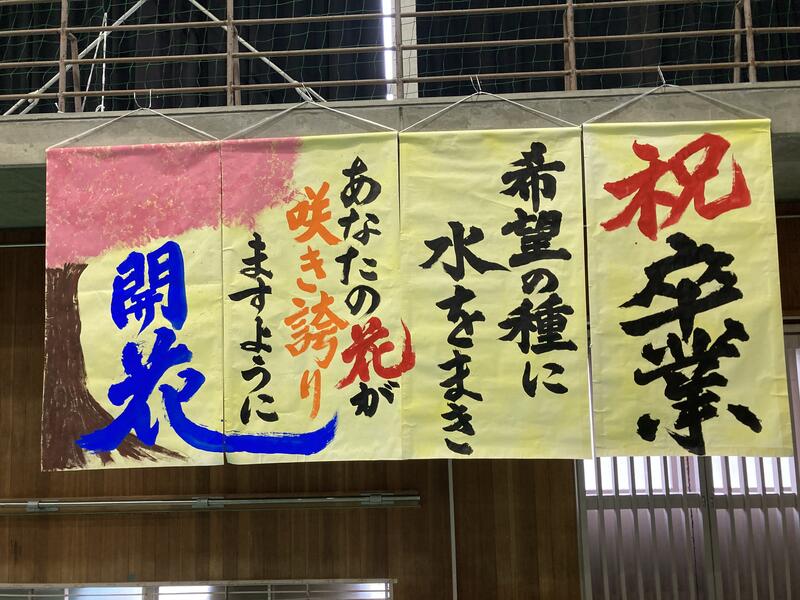 祝
卒業
希望の種に
水をまき
あなたの花が
咲き誇り
ますように
開花